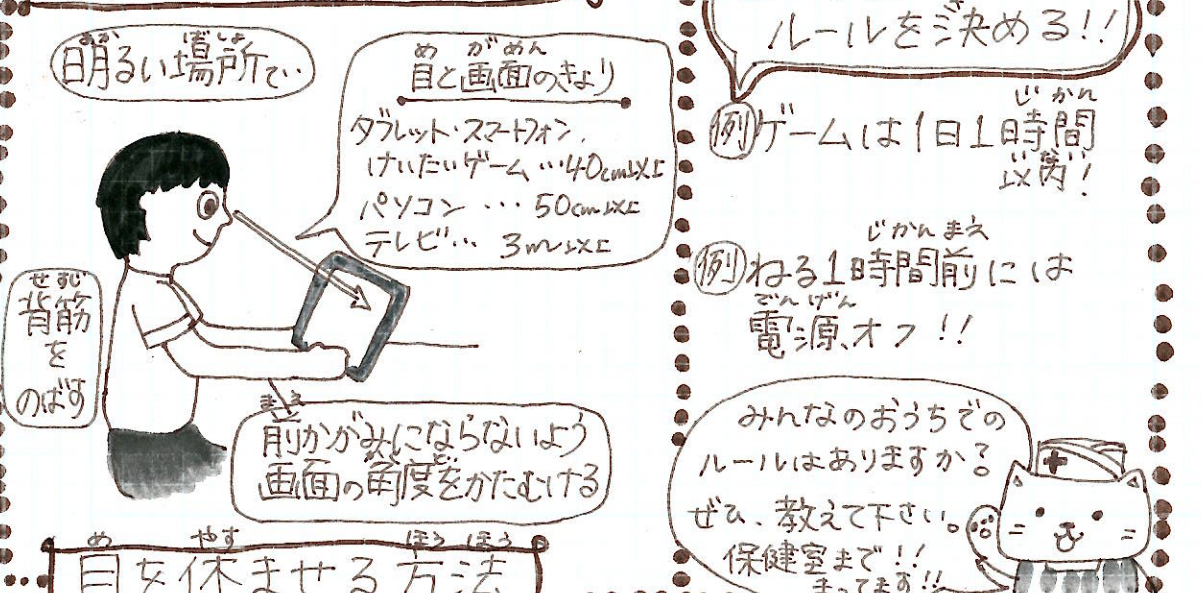 明るい場所で
あか ばしょ
目と画面のきょり
め がめん
タブレット・スマートフォン、
けいたいゲーム…40cm以上
パソコン … 50cm以上
テレビ… 3m以上
背筋
せすじ
を
のばす
前かがみにならないよう
まえ
画面の角度をかたむける
目を休ませる方法
め やす ほうほう
ルールを決める!!
例 ゲームは1日1時間
じかん
以内!
いない
例 ねる1時間前には
じかんまえ
電源オフ!!
でんげん
みんなのおうちでの
ルールはありますか?
ぜひ、教えて下さい。
保健室まで!!
まってます!!